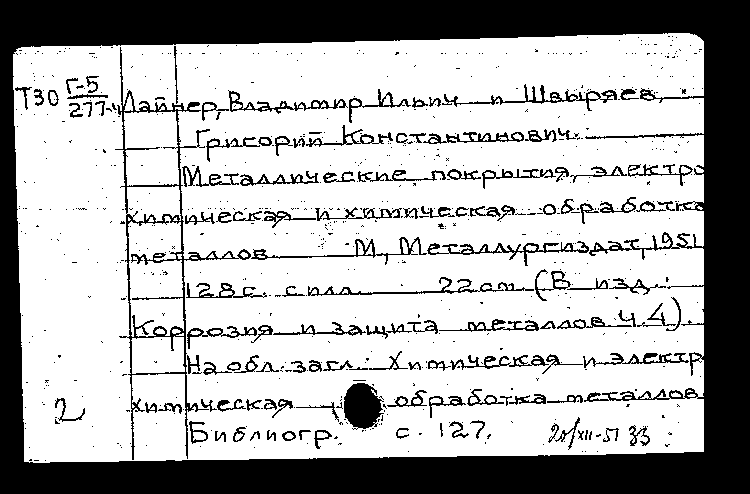 Т30 Г-5 Лайнер, Владимир Ильич и Швыряев,
277-4
Григорий Константинович.
Металлические покрытия, электро
химическая и химическая обработка
металлов. М, Металлургиздат, 1951
128 с. с илл. 22 см (В изд.:
Коррозия и защита металлов ч. 4).
На обл. загл.: Химическая и электр
2 химическая обработка металлов.
Библиогр. с. 127. 20/XII-51 33